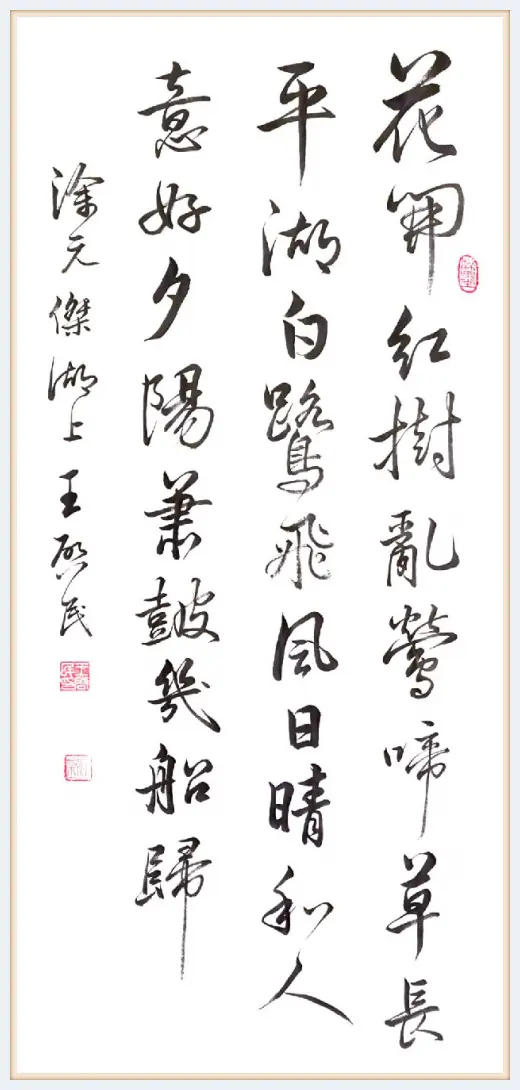 花開紅樹亂鶯啼草長
平湖白鷺飛風日晴和人
意好夕陽蕭皷幾船歸
徐元傑湖上王啓民